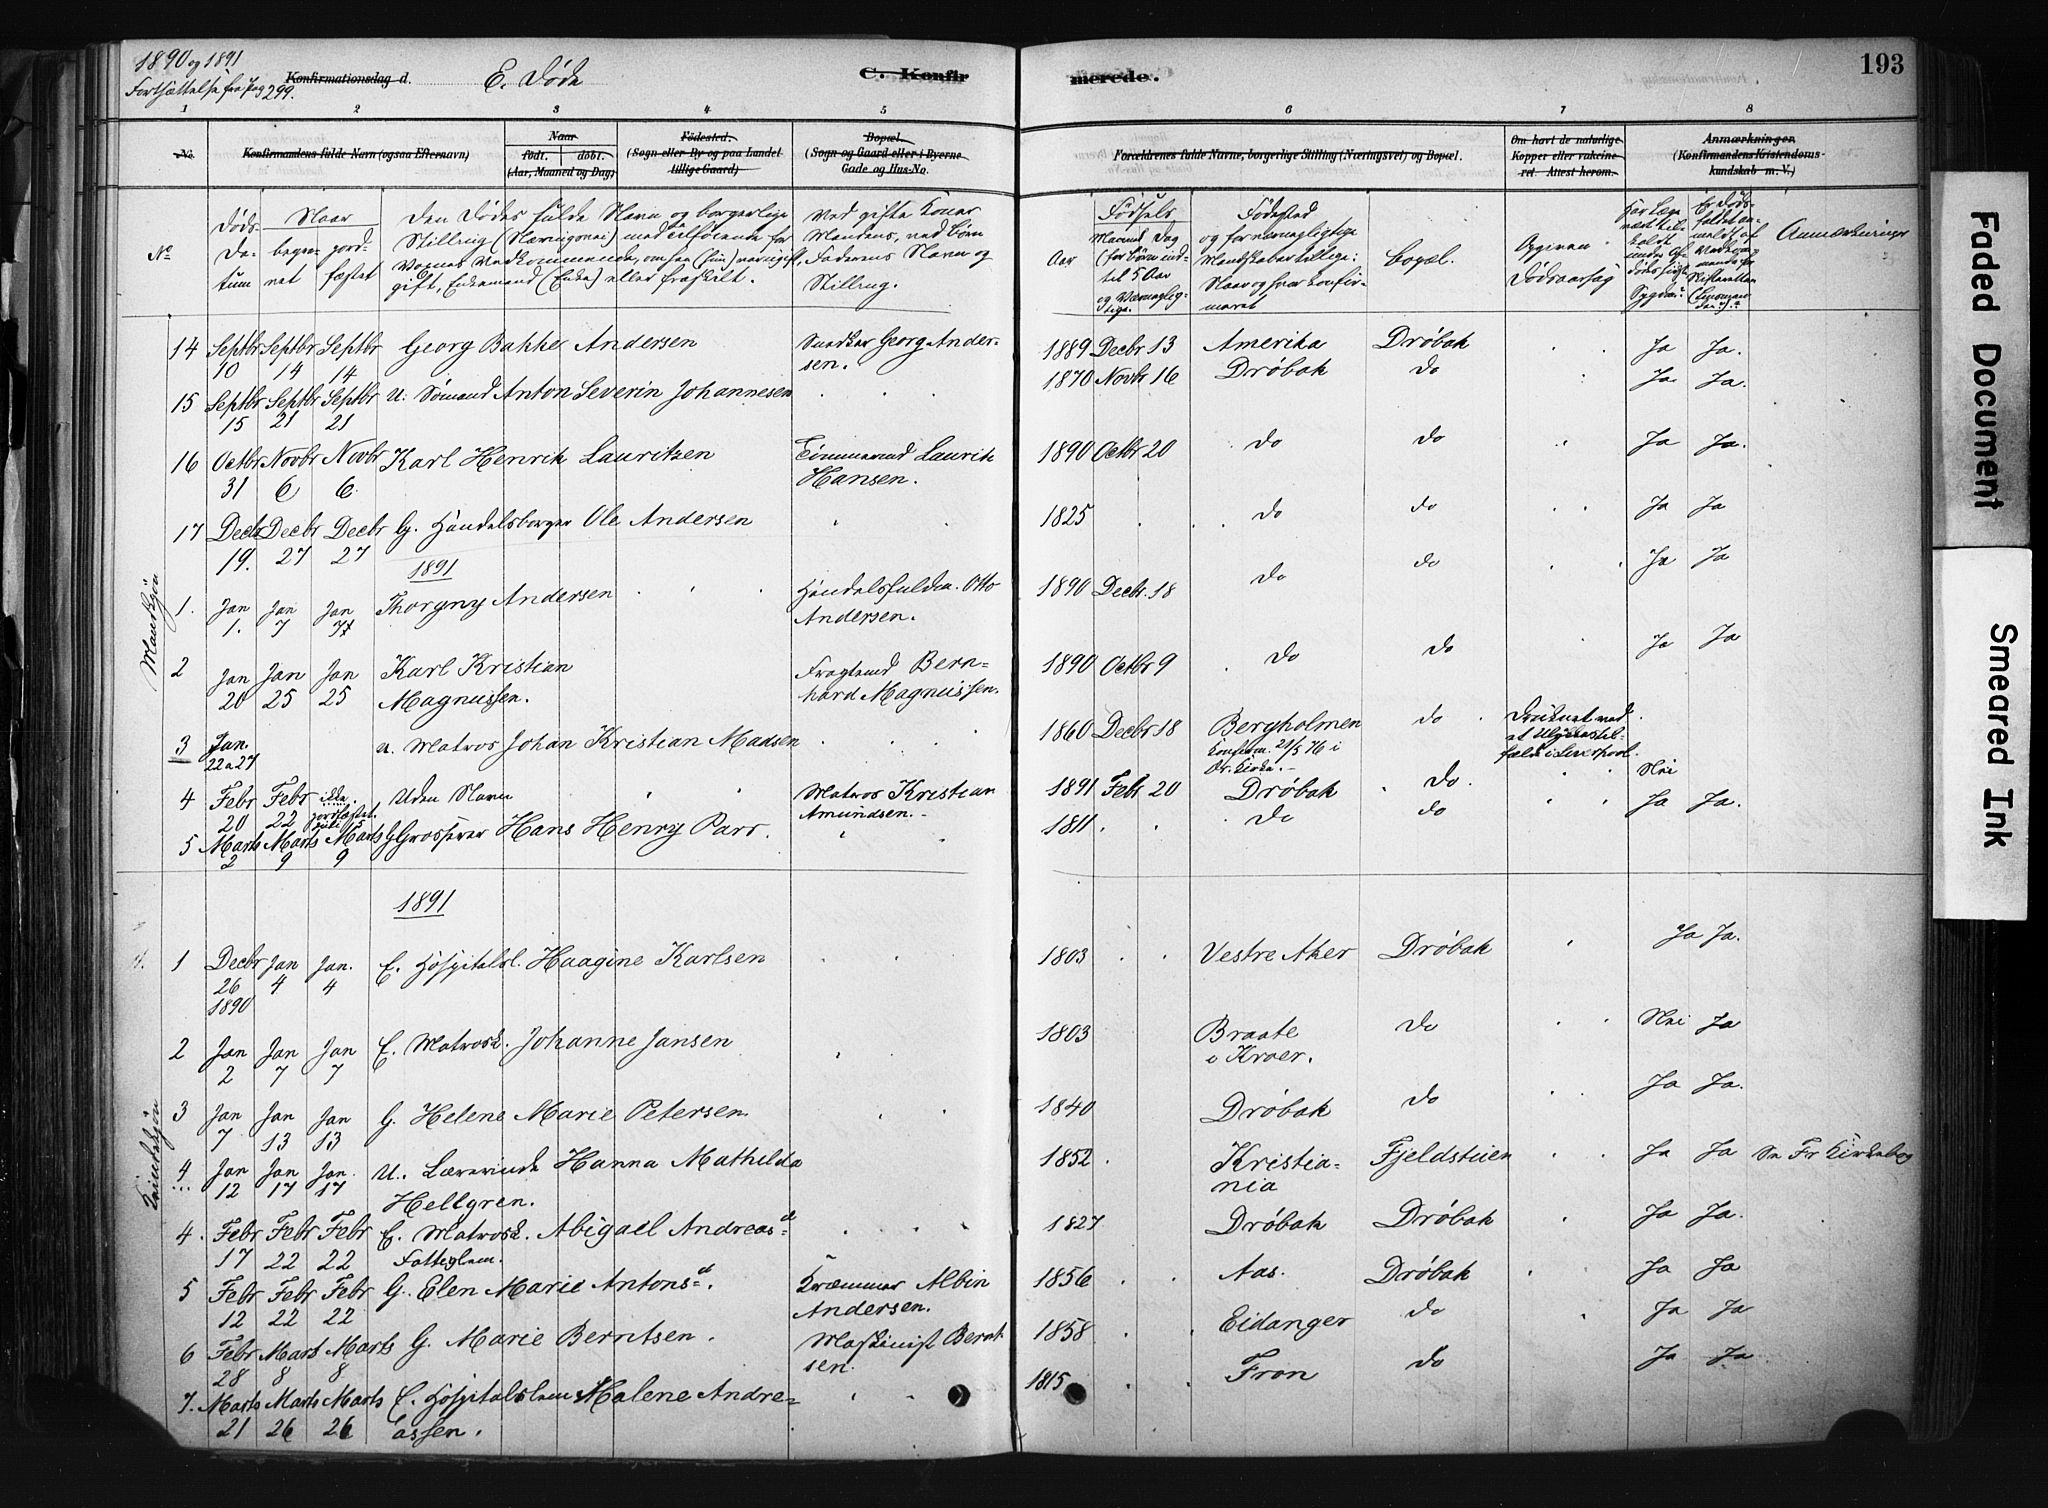 1890 og 1891
Fortsættelse fra Pag 299.
Konfirmationsdag d. E. Døde C. Konfirmerede. 193
1 2 3 4 5 6 7 8
No. Konfirmandens fulde Navn (ogsaa Efternavn) Naar født. døbt. (Aar, Maaned og Dag) Fødested. (Sogn eller By og paa Landet tillige Gaard) Bopæl. (Sogn og Gaard eller i Byerne Gade og Hus-No. Forældrenes fulde Navne, borgerlige Stilling (Næringsvei) og Bopæl. Om havt de naturlige Kopper eller vaccineret. Attest herom. Anmærkninger (Konfirmandens Kristendomskundskab m. V.)
No Døds Datum Naar begravet jordfæstet Den Dødes fulde Navn og borgerlige Stilling (Næringsvei) med Tilføiende for Voxnes Vedkommende, om han (hun) var ugift, gift, Enkemand (Enke) eller fraskilt. Ved gifte Koner Mandens, ved Børn Faderens Navn og Stilling. Fødsels Aar Maaned Dag (for Børn indtil 5 Aar og Værnepligtige. Fødested og for værnepligtige Mandskaber tillige: Naar og hvor konfirmeret Bopæl. Opgiven Dødsaarsag Anmærkninger
Mandkjøn
14 Septbr 10 Septbr 14 Septbr 14 Georg Bakke Andersen Snedker Georg Andersen. 1889 Decbr 13 Amerika Drøbak Ja Ja.
15 Septbr 15 Septbr 21 Septbr 21 U. Sømand Anton Severin Johannesen 1870 Novbr 16 Drøbak do Ja Ja.
16 Octbr 31 Novbr 6 Novbr 6. Karl Henrik Lauritzen Tømmermd Laurits Hansen. 1890 Octbr 20 do do Ja Ja.
17 Decbr 19. Decbr 27 Decbr 27 G. Handelsborger Ole Andersen 1825 do do Ja Ja
1891
1. Jan 1. Jan 7 Jan 7 Thorgny Andersen Handelsfuldm. Otto Andersen. 1890 Decbr. 18 do do Ja Ja
2 Jan 20 Jan 25 Jan 25 Karl Kristian Magnussen. Fragtemd Bernhard Magnussen. 1890 Octbr 9 do do Ja Ja
3 Jan. 22 a 27 u. Matros Johan Kristian Madsen 1860 Decbr 18 Bergholmen Konfirm. 21/5 76 i Dr. Kirke. do Druknet ved et Ulykkestilfælde i Liverpool.
4 Febr 20 Febr 22 ikke jordfæstet Uden Navn Matros Kristian Amundsen. 1891 Febr 20 Drøbak do. Nei
5 Marts 2 Marts 9 Marts 9 G Grosserer Hans Henry Parr. 1811 do do Ja Ja.
1891
Kvindekjøn
1 Decbr 26 1890 Jan 4 Jan. 4 E. Hospitalsl. Haagine Karlsen 1803 Vestre Aker Drøbak Ja Ja.
2 Jan 2 Jan 7 Jan 7 E. Matrosk. Johanne Jansen 1803 Braate i Kroer. do Nei Ja
3 Jan 7 Jan 13 Jan 13 G. Helene Marie Petersen 1840 Drøbak do Ja Ja.
4 Jan 12 Jan 17 Jan. 17 U. Lærerinde Hanna Mathilda Hellgren. 1852. Kristiania Fjeldstuen Ja Ja Se Fr Kirkebog
4. Febr 17 Febr 22 Febr 22 E. Matrosk. Abigael Andreasd Fattiglem. 1827 Drøbak Drøbak Ja Ja.
5 Febr 12 Febr 22 Febr 22 G. Elen Marie Antonsd. Kræmmer Albin Andersen. 1856 Aas. Drøbak Ja Ja
6 Febr 28 Mart 8 Marts 8 G. Marie Berntsen. Maskinist Berntsen. 1858 Eidanger do Ja Ja
7. Marts 21 Marts 26 Marts 26 E. Hospitalslem Malene Andreassen. 1815 Fron do Ja Ja
Faded Document
Smeared Ink